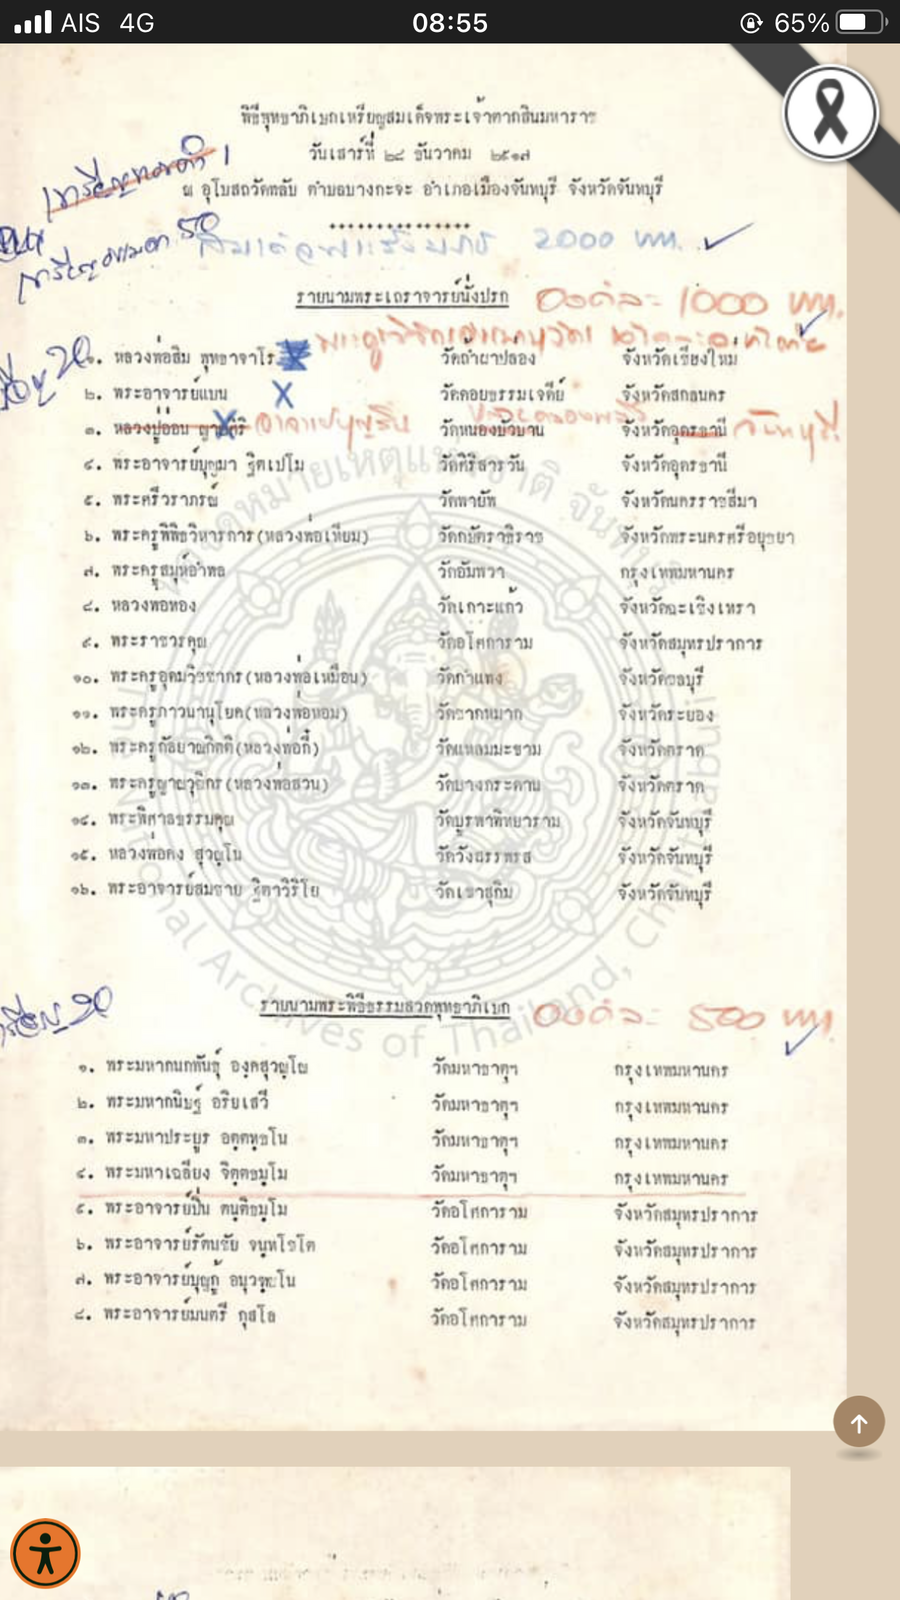 AIS 4G 08:55 65%
พิธีพุทธาภิเษกเหรียญสมเด็จพระเจ้าตากสินมหาราช
วันเสาร์ที่ ๒๘ ธันวาคม ๒๕๑๗
ณ อุโบสถวัดพลับ ตำบลบางกะจะ อำเภอเมืองจันทบุรี จังหวัดจันทบุรี
เหรียญทองคำ 1
เหรียญธรรมดา 50
2000 บาท
รายนามพระเถราจารย์นั่งปรก องค์ละ 1000 บาท.
20
๑. หลวงพ่อสิม พุทธาจาโร วัดถ้ำผาปล่อง จังหวัดเชียงใหม่
๒. พระอาจารย์แบน วัดดอยธรรมเจดีย์ จังหวัดสกลนคร
๓. หลวงปู่อ่อน ญาณสิริ วัดหนองบัวบาน จังหวัดอุดรธานี จันทบุรี
๔. พระอาจารย์บุญมา ฐิตเปโม วัดศิริสาลวัน จังหวัดอุดรธานี
๕. พระศรีวราภรณ์ วัดพายัพ จังหวัดนครราชสีมา
๖. พระครูพิพิธวิหารการ(หลวงพ่อเทียม) วัดกษัตราธิราช จังหวัดพระนครศรีอยุธยา
๗. พระครูสมุห์อำพล วัดอัมพวา กรุงเทพมหานคร
๘. หลวงพ่อทอง วัดเกาะแก้ว จังหวัดฉะเชิงเทรา
๙. พระราชวรคุณ วัดอโศการาม จังหวัดสมุทรปราการ
๑๐. พระครูอุดมวิชชากร(หลวงพ่อเหมือน) วัดกำแพง จังหวัดชลบุรี
๑๑. พระครูภาวนานุโยค(หลวงพ่อหอม) วัดชากหมาก จังหวัดระยอง
๑๒. พระครูกัลยาณกิตติ(หลวงพ่อกี๋) วัดแหลมมะขาม จังหวัดตราด
๑๓. พระครูญาณวุฒิกร(หลวงพ่อสวน) วัดบางกระดาน จังหวัดตราด
๑๔. พระพิศาลธรรมคุณ วัดบูรพาพิทยาราม จังหวัดจันทบุรี
๑๕. หลวงพ่อคง สุวณฺโน วัดวังสรรพรส จังหวัดจันทบุรี
๑๖. พระอาจารย์สมชาย ฐิตวิริโย วัดเขาสุกิม จังหวัดจันทบุรี
รายนามพระพิธีธรรมสวดพุทธาภิเษก องค์ละ 500 บาท
20
๑. พระมหาถนกพันธุ์ องฺคสุวณฺโณ วัดมหาธาตุฯ กรุงเทพมหานคร
๒. พระมหากนิษฐ์ อริยเสวี วัดมหาธาตุฯ กรุงเทพมหานคร
๓. พระมหาประยูร อตฺตทฺชโน วัดมหาธาตุฯ กรุงเทพมหานคร
๔. พระมหาเฉลียง จิตฺตธมฺโม วัดมหาธาตุฯ กรุงเทพมหานคร
๕. พระอาจารย์ปิ่น ตนฺติธมฺโม วัดอโศการาม จังหวัดสมุทรปราการ
๖. พระอาจารย์รัตนชัย จนฺทโชโต วัดอโศการาม จังหวัดสมุทรปราการ
๗. พระอาจารย์บุญกู้ อนุวฑฺฒโน วัดอโศการาม จังหวัดสมุทรปราการ
๘. พระอาจารย์มนตรี กุสโล วัดอโศการาม จังหวัดสมุทรปราการ
หอจดหมายเหตุแห่งชาติ จันทบุรี
National Archives of Thailand, Chanthaburi